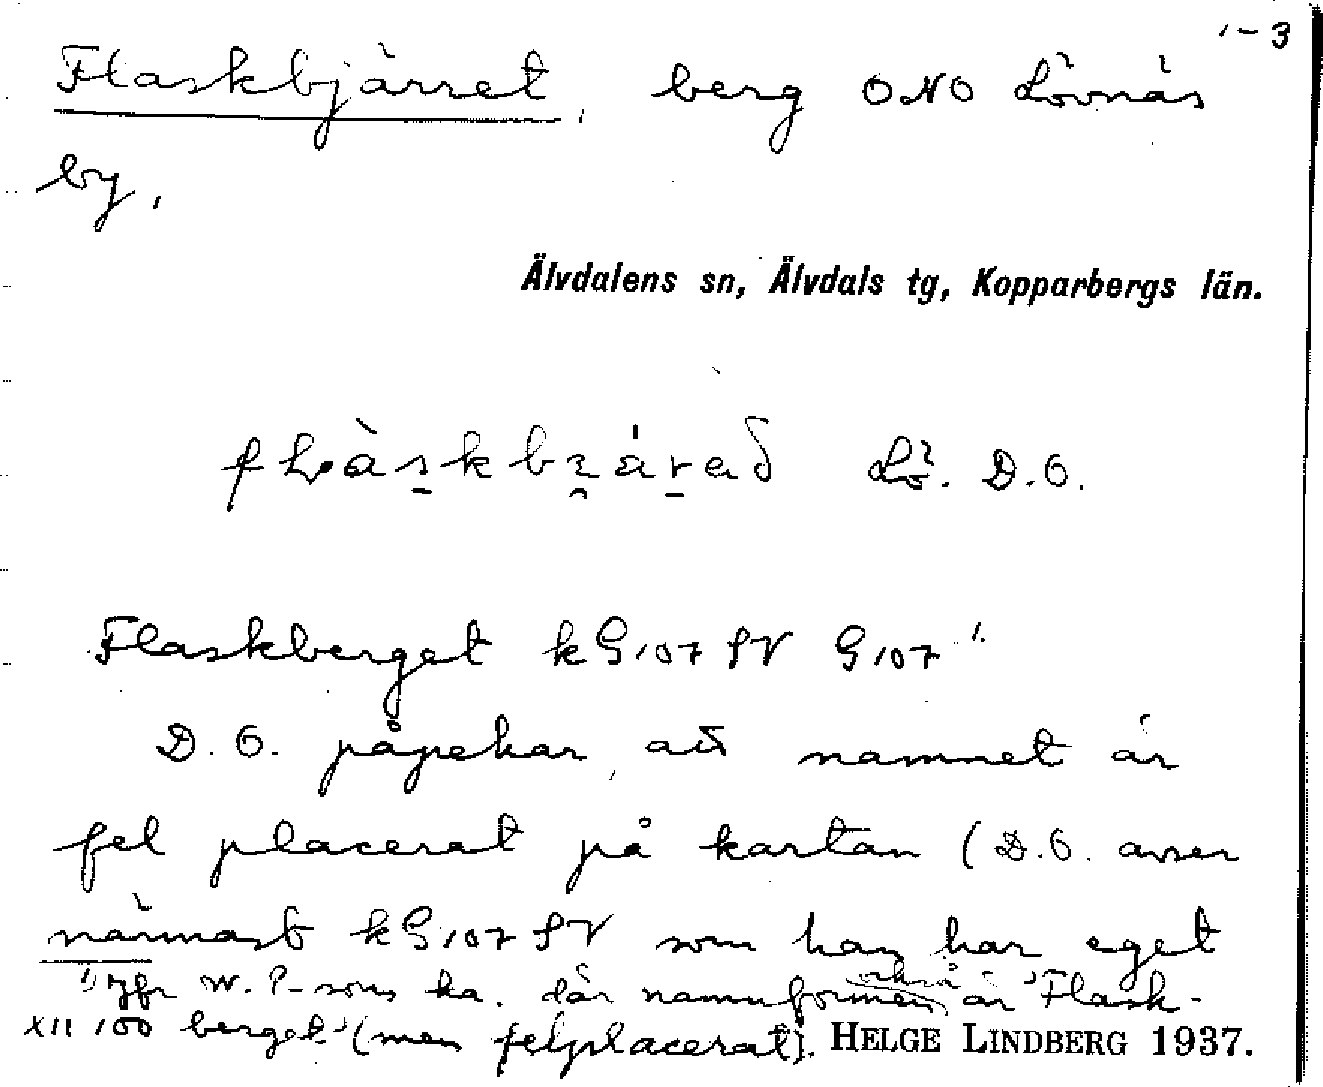 1-3
Flaskbjärret, berg ONO Lövnäs
by,
Älvdalens sn, Älvdals tg, Kopparbergs län.
Lö. D.O.
Flaskberget kG107 SV G107 1.
D.O. påpekar, att namnet är
fel placerat på kartan (D.O. avser
närmast kG107 SV som han har eget
1) Jfr W. P-sons ka. där namnformen också är "Flask-
XII 100 berget" (men felplacerat).
HELGE LINDBERG 1937.